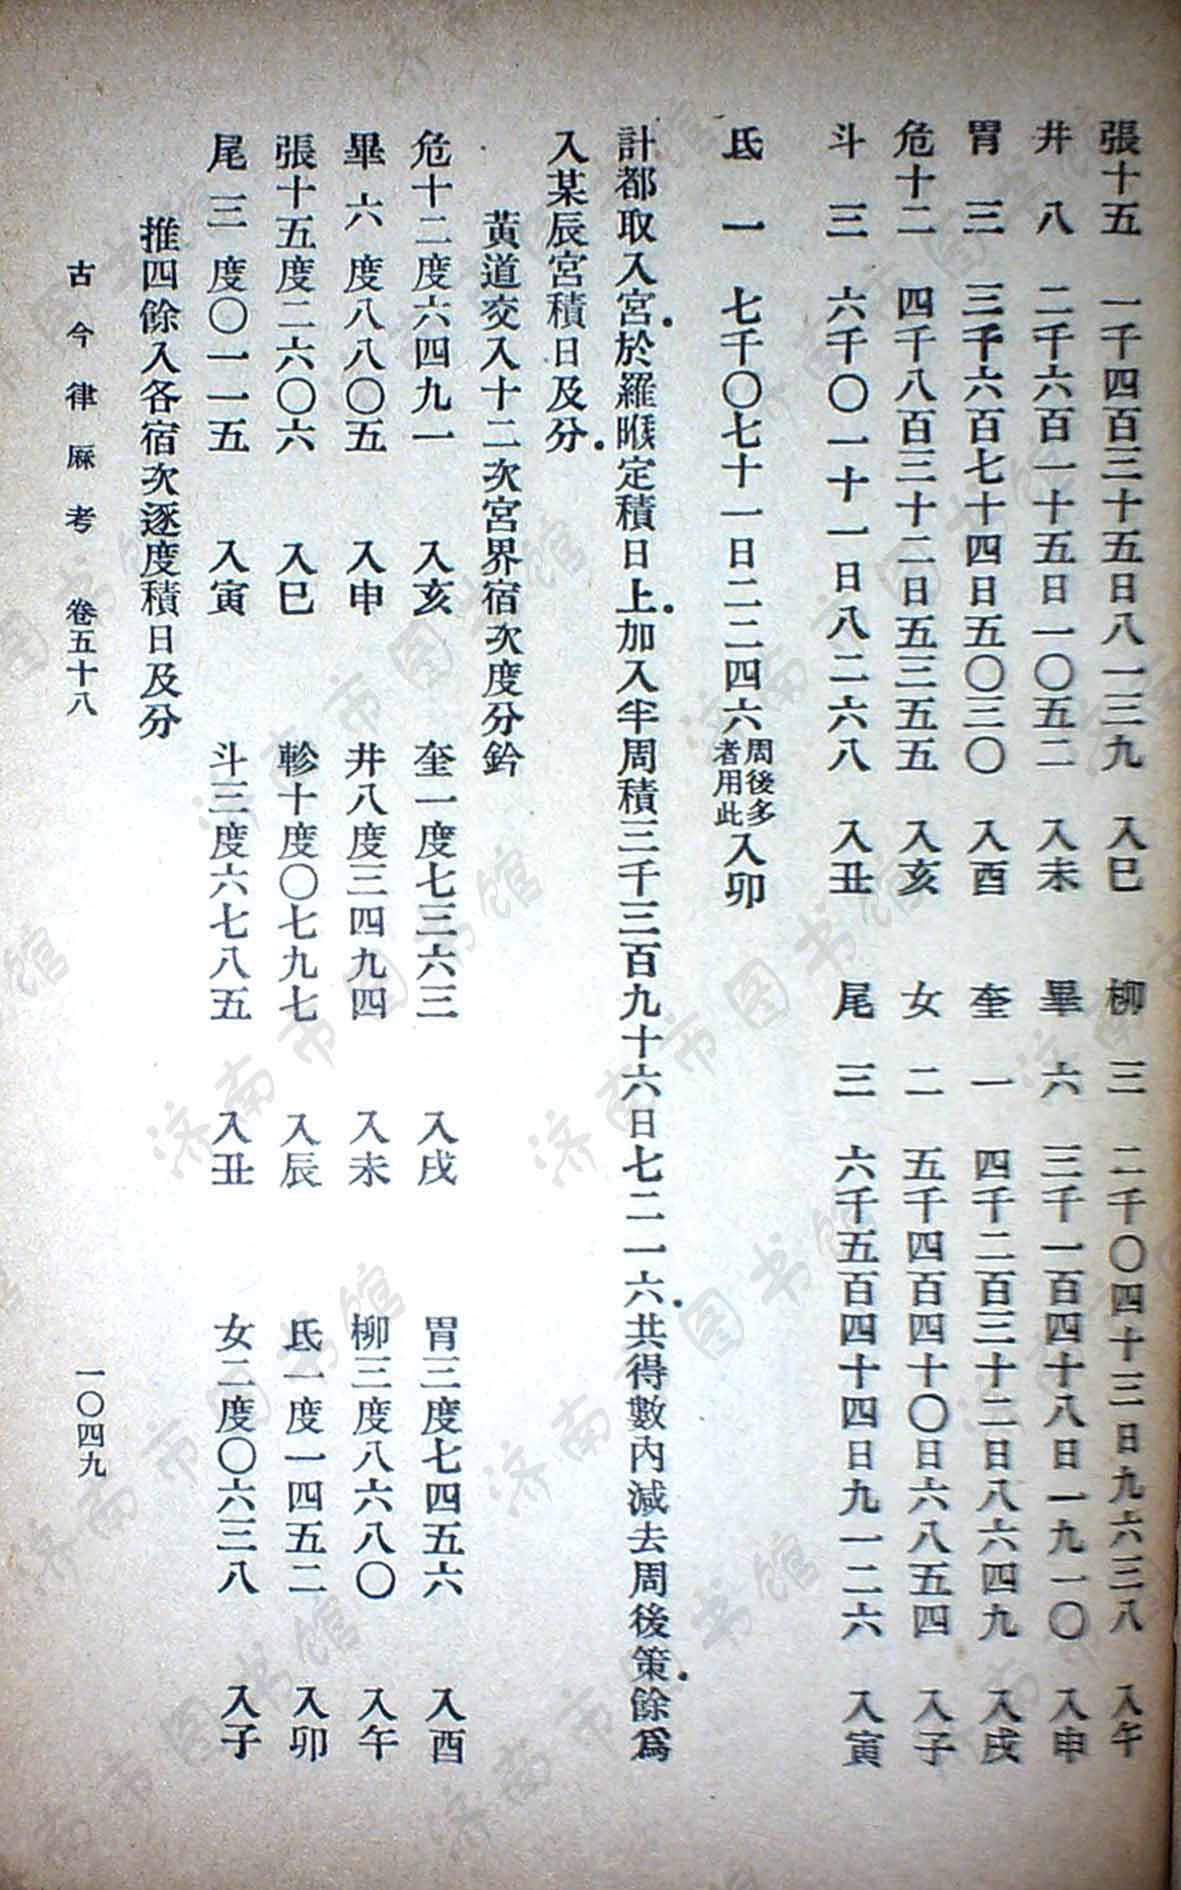 張十五　一千四百三十五日八一三九　入巳　柳　三　二千〇四十三日九六三八　入午
井　八　二千六百一十五日一〇五二　入未　畢　六　三千一百四十八日一九一〇　入申
胃　三　三千六百七十四日五〇三〇　入酉　奎　一　四千二百三十二日八六四九　入戌
危十二　四千八百三十二日五三五五　入亥　女　二　五千四百四十〇日六八五四　入子
斗　三　六千〇一十一日八二六八　入丑　尾　三　六千五百四十四日九一二六　入寅
氐　一　七千〇七十一日二二四六周後多者用此入卯
計都取入宮於羅㬋定積日上加入半周積三千三百九十六日七二一六共得數內減去周後策餘爲
入某辰宮積日及分
黃道交入十二次宮界宿次度分鈐
危十二度六四九一　入亥　奎一度七三六三　入戌　胃三度七四五六　入酉
畢六度八八〇五　入申　井八度三四九四　入未　柳三度八六八〇　入午
張十五度二六〇六　入巳　軫十度〇七九七　入辰　氐一度一四五二　入卯
尾三度〇一一五　入寅　斗三度六七八五　入丑　女二度〇六三八　入子
推四餘入各宿次逐度積日及分
古今律厤考　卷五十八　一〇四九
济南市图书馆